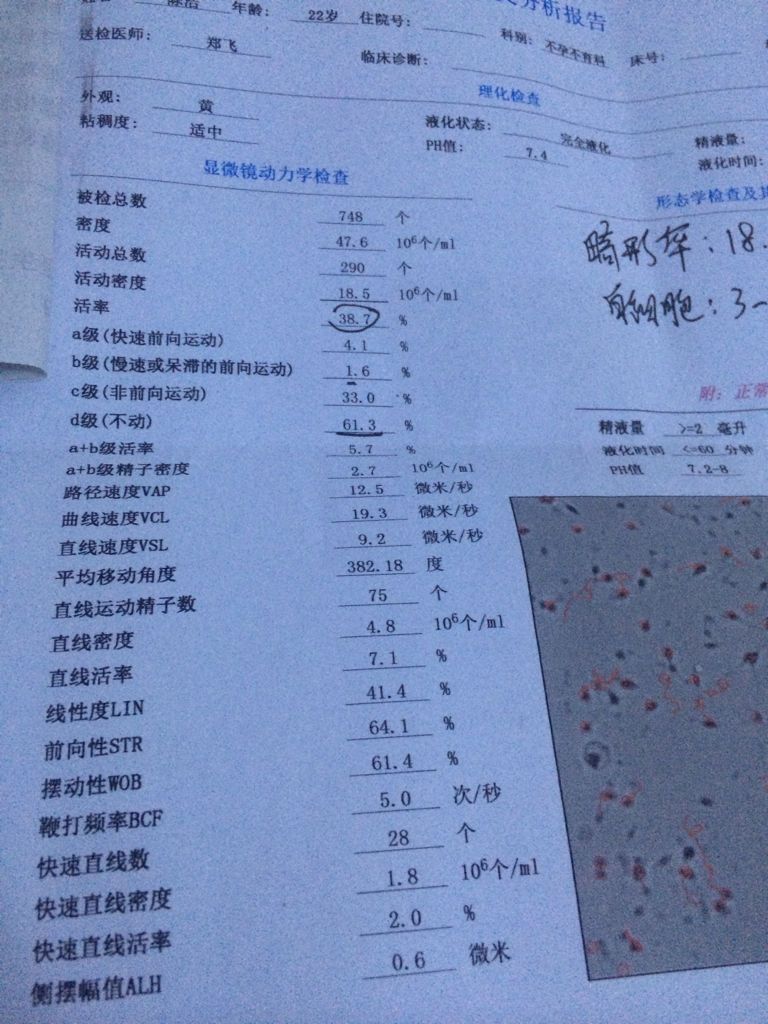 分析报告
年龄: 22岁 住院号: 科别: 不孕不育科 床号:
送检医师: 郑飞 临床诊断:
理化检查
外观: 黄 液化状态: 完全液化 精液量:
粘稠度: 适中 PH值: 7.4 液化时间:
显微镜动力学检查 形态学检查及其
被检总数 748 个
密度 47.6 10⁶个/ml
活动总数 290 个
活动密度 18.5 10⁶个/ml
活率 38.7 %
a级(快速前向运动) 4.1 %
b级(慢速或呆滞的前向运动) 1.6 %
c级(非前向运动) 33.0 %
d级(不动) 61.3 %
a+b级活率 5.7 %
a+b级精子密度 2.7 10⁶个/ml
路径速度VAP 12.5 微米/秒
曲线速度VCL 19.3 微米/秒
直线速度VSL 9.2 微米/秒
平均移动角度 382.18 度
直线运动精子数 75 个
直线密度 4.8 10⁶个/ml
直线活率 7.1 %
线性度LIN 41.4 %
前向性STR 64.1 %
摆动性WOB 61.4 %
鞭打频率BCF 5.0 次/秒
快速直线数 28 个
快速直线密度 1.8 10⁶个/ml
快速直线活率 2.0 %
侧摆幅值ALH 0.6 微米
畸形率: 18.
白细胞: 3-
附: 正常
精液量 >=2 毫升
液化时间 <=60 分钟
PH值 7.2-8